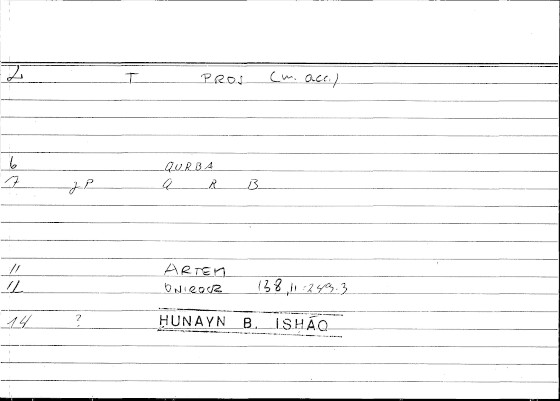 2 T PROS (w. acc.)
6 QURBA
7 gP Q R B
11 ARTEM
12 ONIROCR 138,11-249.3
14 ? HUNAYN B. ISHĀQ